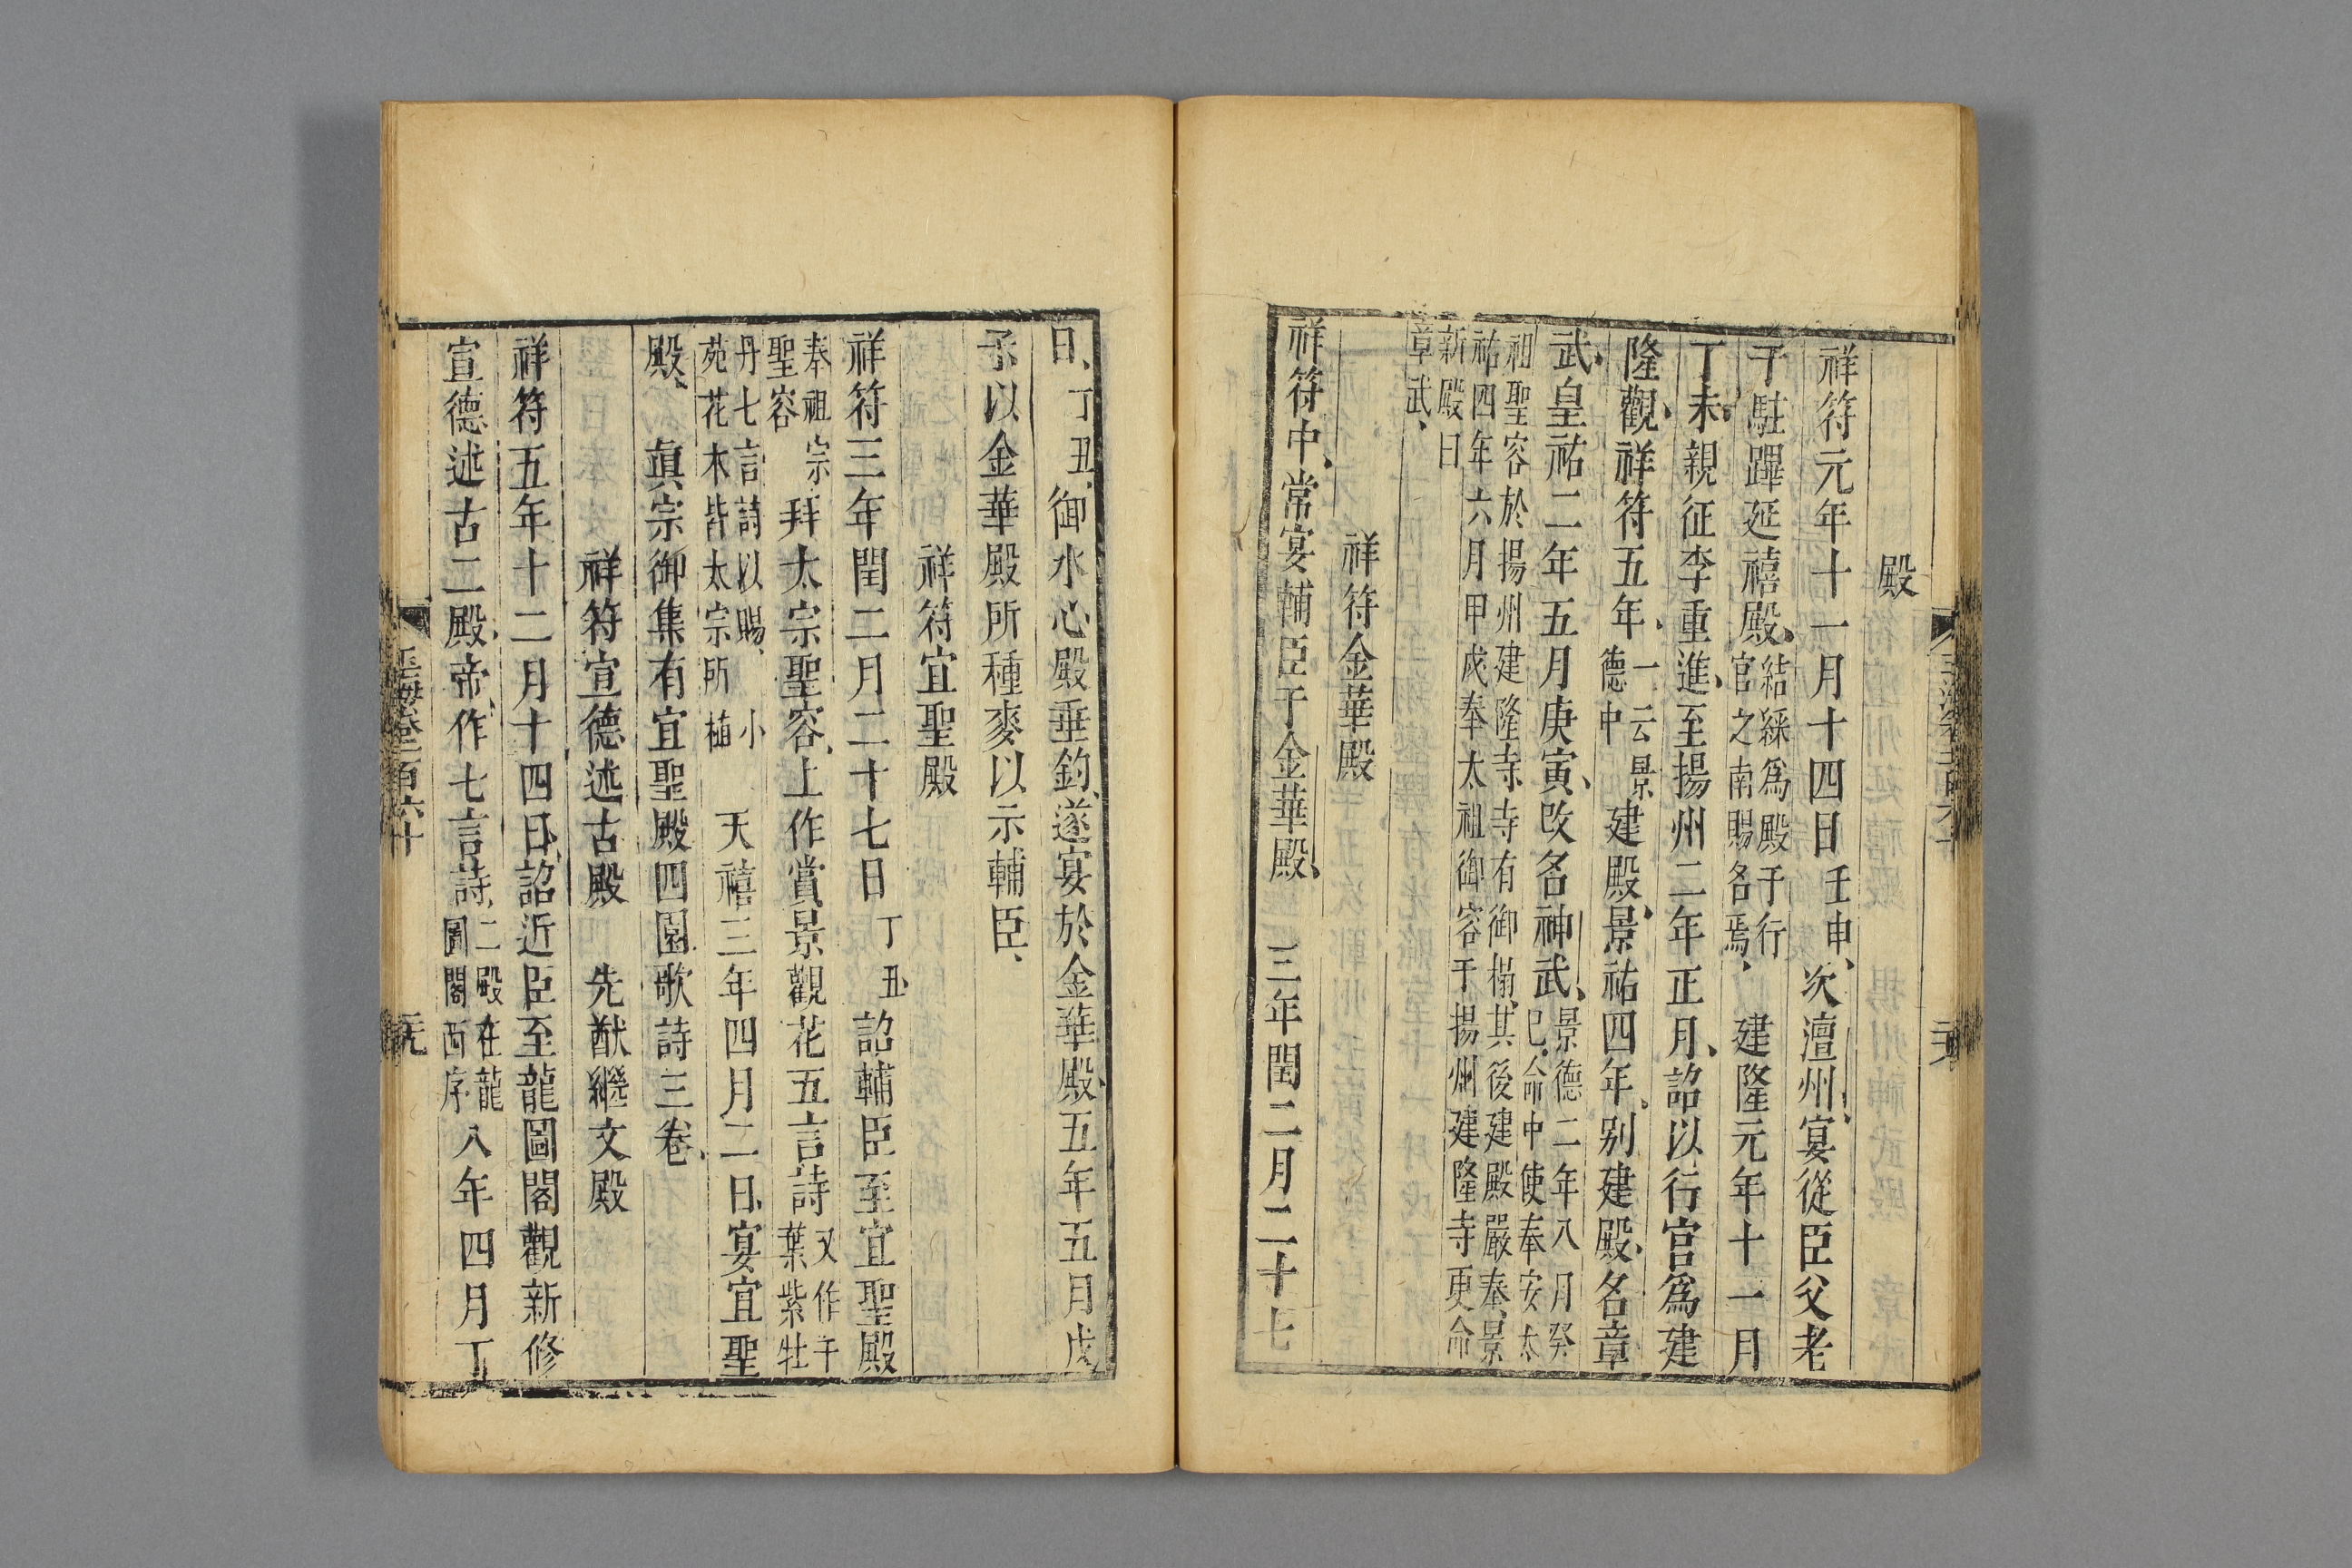 殿
祥符元年十一月十四日壬申、次澶州、宴從臣父老
于駐蹕延禧殿、結綵爲殿于行官之南賜名焉、建隆元年十一月
丁未、親征李重進、至揚州二年正月、詔以行宫爲建
隆觀、祥符五年、一云景德中建殿、景祐四年、别建殿、名章
武、皇祐二年五月庚寅、改名神武、景德二年八月癸巳、命中使奉安太
祖聖容於揚州建隆寺、寺有御榻、其後建殿嚴奉、景祐四年六月甲戌奉太祖御容于揚州建隆寺更命
新殿曰章武、
祥符金華殿
祥符中、常宴輔臣于金華殿、三年閏二月二十七
日、丁丑、御水心殿垂釣、遂宴於金華殿、五年五月戊
子、以金華殿所種麥以示輔臣、
祥符宜聖殿
祥符三年閏二月二十七日丁丑、詔輔臣至宜聖殿
奉祖宗聖容拜太宗聖容、上作賞景觀花五言詩又作千葉紫牡
丹七言詩以賜、小苑花木皆太宗所植天禧三年四月二日、宴宜聖
殿、真宗御集有宜聖殿四園歌詩三卷、
祥符宣德述古殿 先猷繼文殿
祥符五年十二月十四日、詔近臣至龍圖閣觀新修
宣德述古二殿、帝作七言詩、二殿在龍圖閣西序八年四月丁
玉海卷一百六十